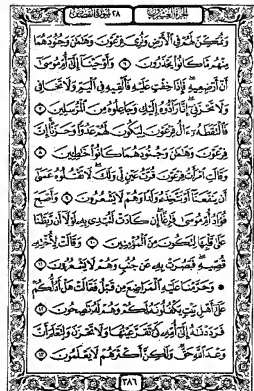 الجزء العشرون ٢٨ سورة القصص
وَنُمَكِّنَ لَهُمْ فِي الْأَرْضِ وَنُرِيَ فِرْعَوْنَ وَهَامَانَ وَجُنُودَهُمَا
مِنْهُم مَّا كَانُوا يَحْذَرُونَ ٦ وَأَوْحَيْنَا إِلَىٰ أُمِّ مُوسَىٰ
أَنْ أَرْضِعِيهِ فَإِذَا خِفْتِ عَلَيْهِ فَأَلْقِيهِ فِي الْيَمِّ وَلَا تَخَافِي
وَلَا تَحْزَنِي إِنَّا رَادُّوهُ إِلَيْكِ وَجَاعِلُوهُ مِنَ الْمُرْسَلِينَ ٧
فَالْتَقَطَهُ آلُ فِرْعَوْنَ لِيَكُونَ لَهُمْ عَدُوًّا وَحَزَنًا إِنَّ
فِرْعَوْنَ وَهَامَانَ وَجُنُودَهُمَا كَانُوا خَاطِئِينَ ٨
وَقَالَتِ امْرَأَتُ فِرْعَوْنَ قُرَّتُ عَيْنٍ لِّي وَلَكَ لَا تَقْتُلُوهُ عَسَىٰ
أَن يَنفَعَنَا أَوْ نَتَّخِذَهُ وَلَدًا وَهُمْ لَا يَشْعُرُونَ ٩ وَأَصْبَحَ
فُؤَادُ أُمِّ مُوسَىٰ فَارِغًا إِن كَادَتْ لَتُبْدِي بِهِ لَوْلَا أَن رَّبَطْنَا
عَلَىٰ قَلْبِهَا لِتَكُونَ مِنَ الْمُؤْمِنِينَ ١٠ وَقَالَتْ لِأُخْتِهِ
قُصِّيهِ فَبَصُرَتْ بِهِ عَن جُنُبٍ وَهُمْ لَا يَشْعُرُونَ ١١
وَحَرَّمْنَا عَلَيْهِ الْمَرَاضِعَ مِن قَبْلُ فَقَالَتْ هَلْ أَدُلُّكُمْ
عَلَىٰ أَهْلِ بَيْتٍ يَكْفُلُونَهُ لَكُمْ وَهُمْ لَهُ نَاصِحُونَ ١٢
فَرَدَدْنَاهُ إِلَىٰ أُمِّهِ كَيْ تَقَرَّ عَيْنُهَا وَلَا تَحْزَنَ وَلِتَعْلَمَ أَنَّ
وَعْدَ اللَّهِ حَقٌّ وَلَٰكِنَّ أَكْثَرَهُمْ لَا يَعْلَمُونَ ١٣
٣٨٦